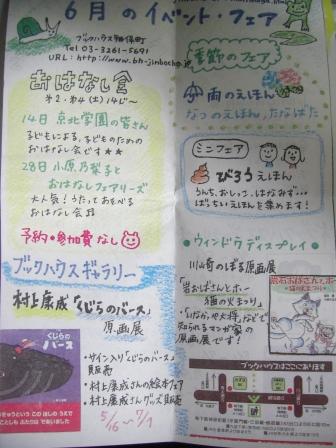 6月のイベント・フェア
ブックハウス神保町
Tel 03-3261-5691
URL: http://www.bh-jinbocho.jp
おはなし会
第2・第4(土)14じ〜
14日 京北学園の皆さん
子どもによる、子どものための
おはなし会です★★
28日 小原乃梨子と
おはなしフェアリーズ
大人気!うたってあそべる
おはなし会
予約・参加費なし
ブックハウスギャラリー
村上康成「くじらのバース」
原画展
くじらの
バース
・サイン入り「くじらのバース」
販売
・村上康成さんの絵本フェア
・村上康成さんグッズ販売
5/16〜7/1
季節のフェア
雨のえほん
なつのえほん、たなばた
ミニフェア
びろうえほん
うんち、おしっこ、はなみず…
ばっちいえほんを集めます!
・ウィンドウディスプレイ・
川崎のぼる原画展
「岩石おばさんとホー
猫の火まつり」
・「いなかっぺ大将」などで
知られるマンガ家の
原画展です!
岩石おばさんとホー
猫の火まつり
ブックハウスはここにあります